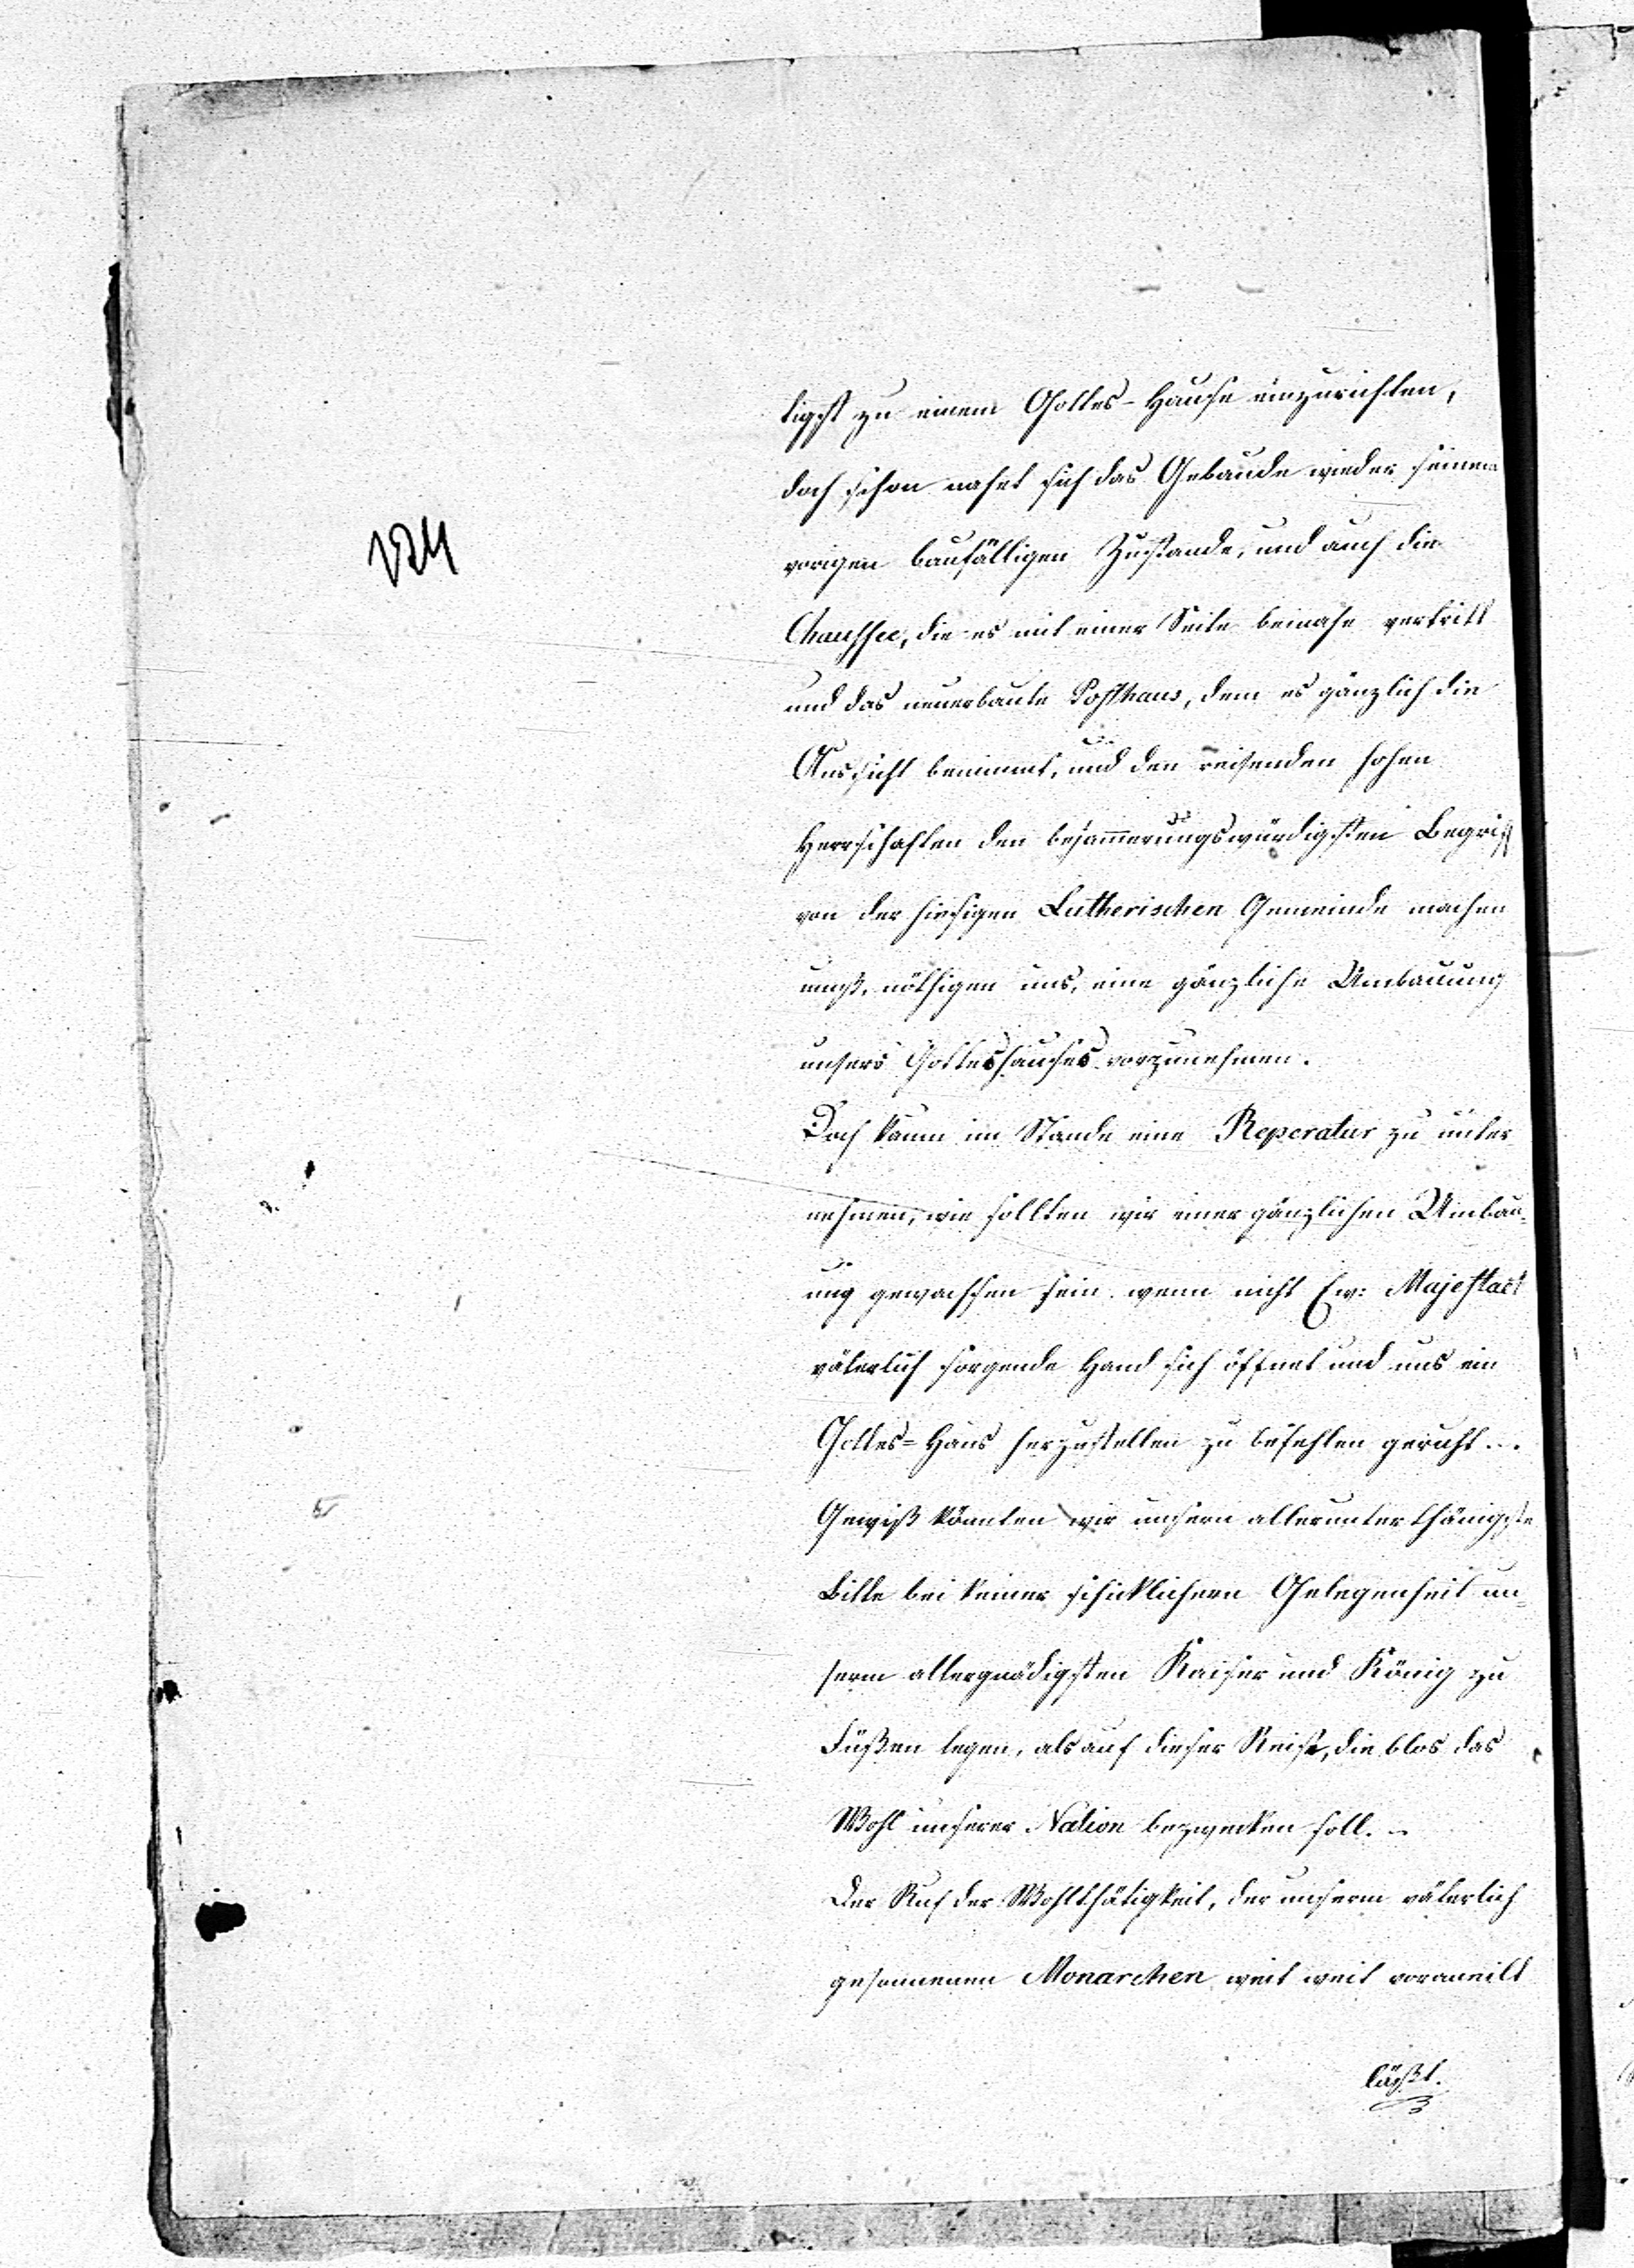 tigst zu einem Gottes-Hause einzurichten,
doch schon nahet sich das Gebäude wieder seinem
vorigen baufälligen Zustande, und auch die
Chaussee, die es mit einer Seite beinahe vertritt
und das neuerbaute Posthaus, dem es gänzlich die
Aussicht benimmt, und den reisenden hohen
Herrschaften den bejammerungswürdigsten Begriff
von der hiesigen Lutherischen Gemeinde machen
muß, nöthigen uns, eine gänzliche Umbauung
unsers Gotteshauses vorzunehmen.
Doch kaum im Stande eine Reperatur zu unter
nehmen, wie sollten wir einer gänzlichen Umbau-
ung gewachsen sein wenn nicht Ew: Majestaet
väterlich sorgende Hand sich öffnet und uns ein
Gottes=Haus herzustellen zu befehlen geruht...
Gewiß könnten wir unsern allerunterthänigste
Bitte bei keiner schicklichern Gelegenheit un-
serm allergnädigsten Kaiser und König zu
Füßen legen, als auf dieser Reise, die blos das
Wohl unserer Nation bezwecken soll. -
Der Ruf der Wohlthätigkeit, der unserm väterlich
gesonnenen Monarchen weit weit voraneilt
läßt.